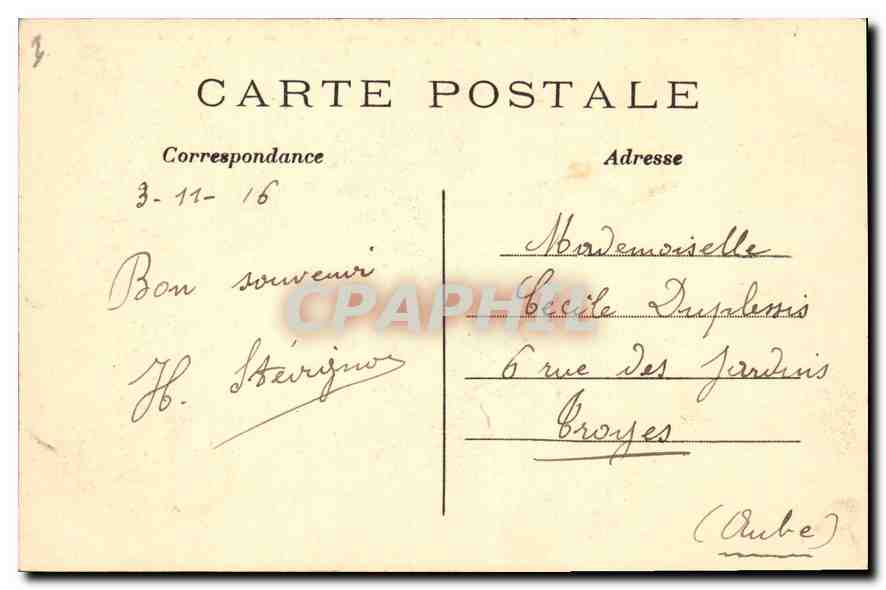 3
CARTE POSTALE
Correspondance
3-11-16
Bon souvenir
H. Stévignon
Adresse
Mademoiselle
Cécile Duplessis
6 rue des Jardins
Troyes
(Aube)
CPAPHIL